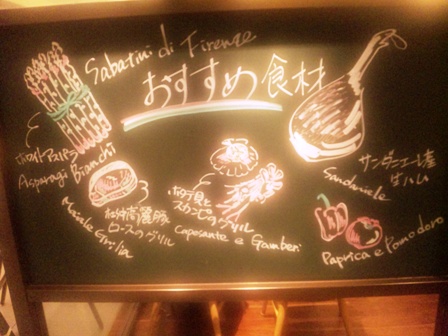 Sabatini di Firenze
おすすめ食材
ホワイトアスパラ
Asparagi Bianchi
ロースのグリル
Maiale Griglia
ホタテ貝と
スカンピのグリル
Capesante e Gamberi
サンダニエーレ産
生ハム
Sandaniele
Paprica e Pomodoro